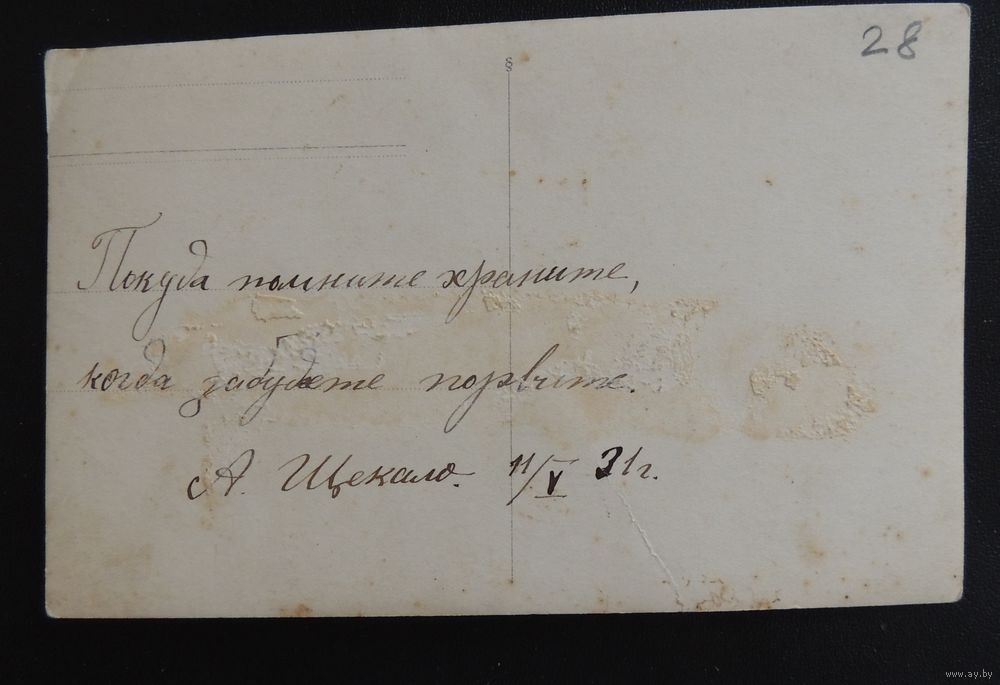 28
Покуда помните храните,
когда забудете порвите.
А. Щекало. 11/V 31г.
www.ay.by